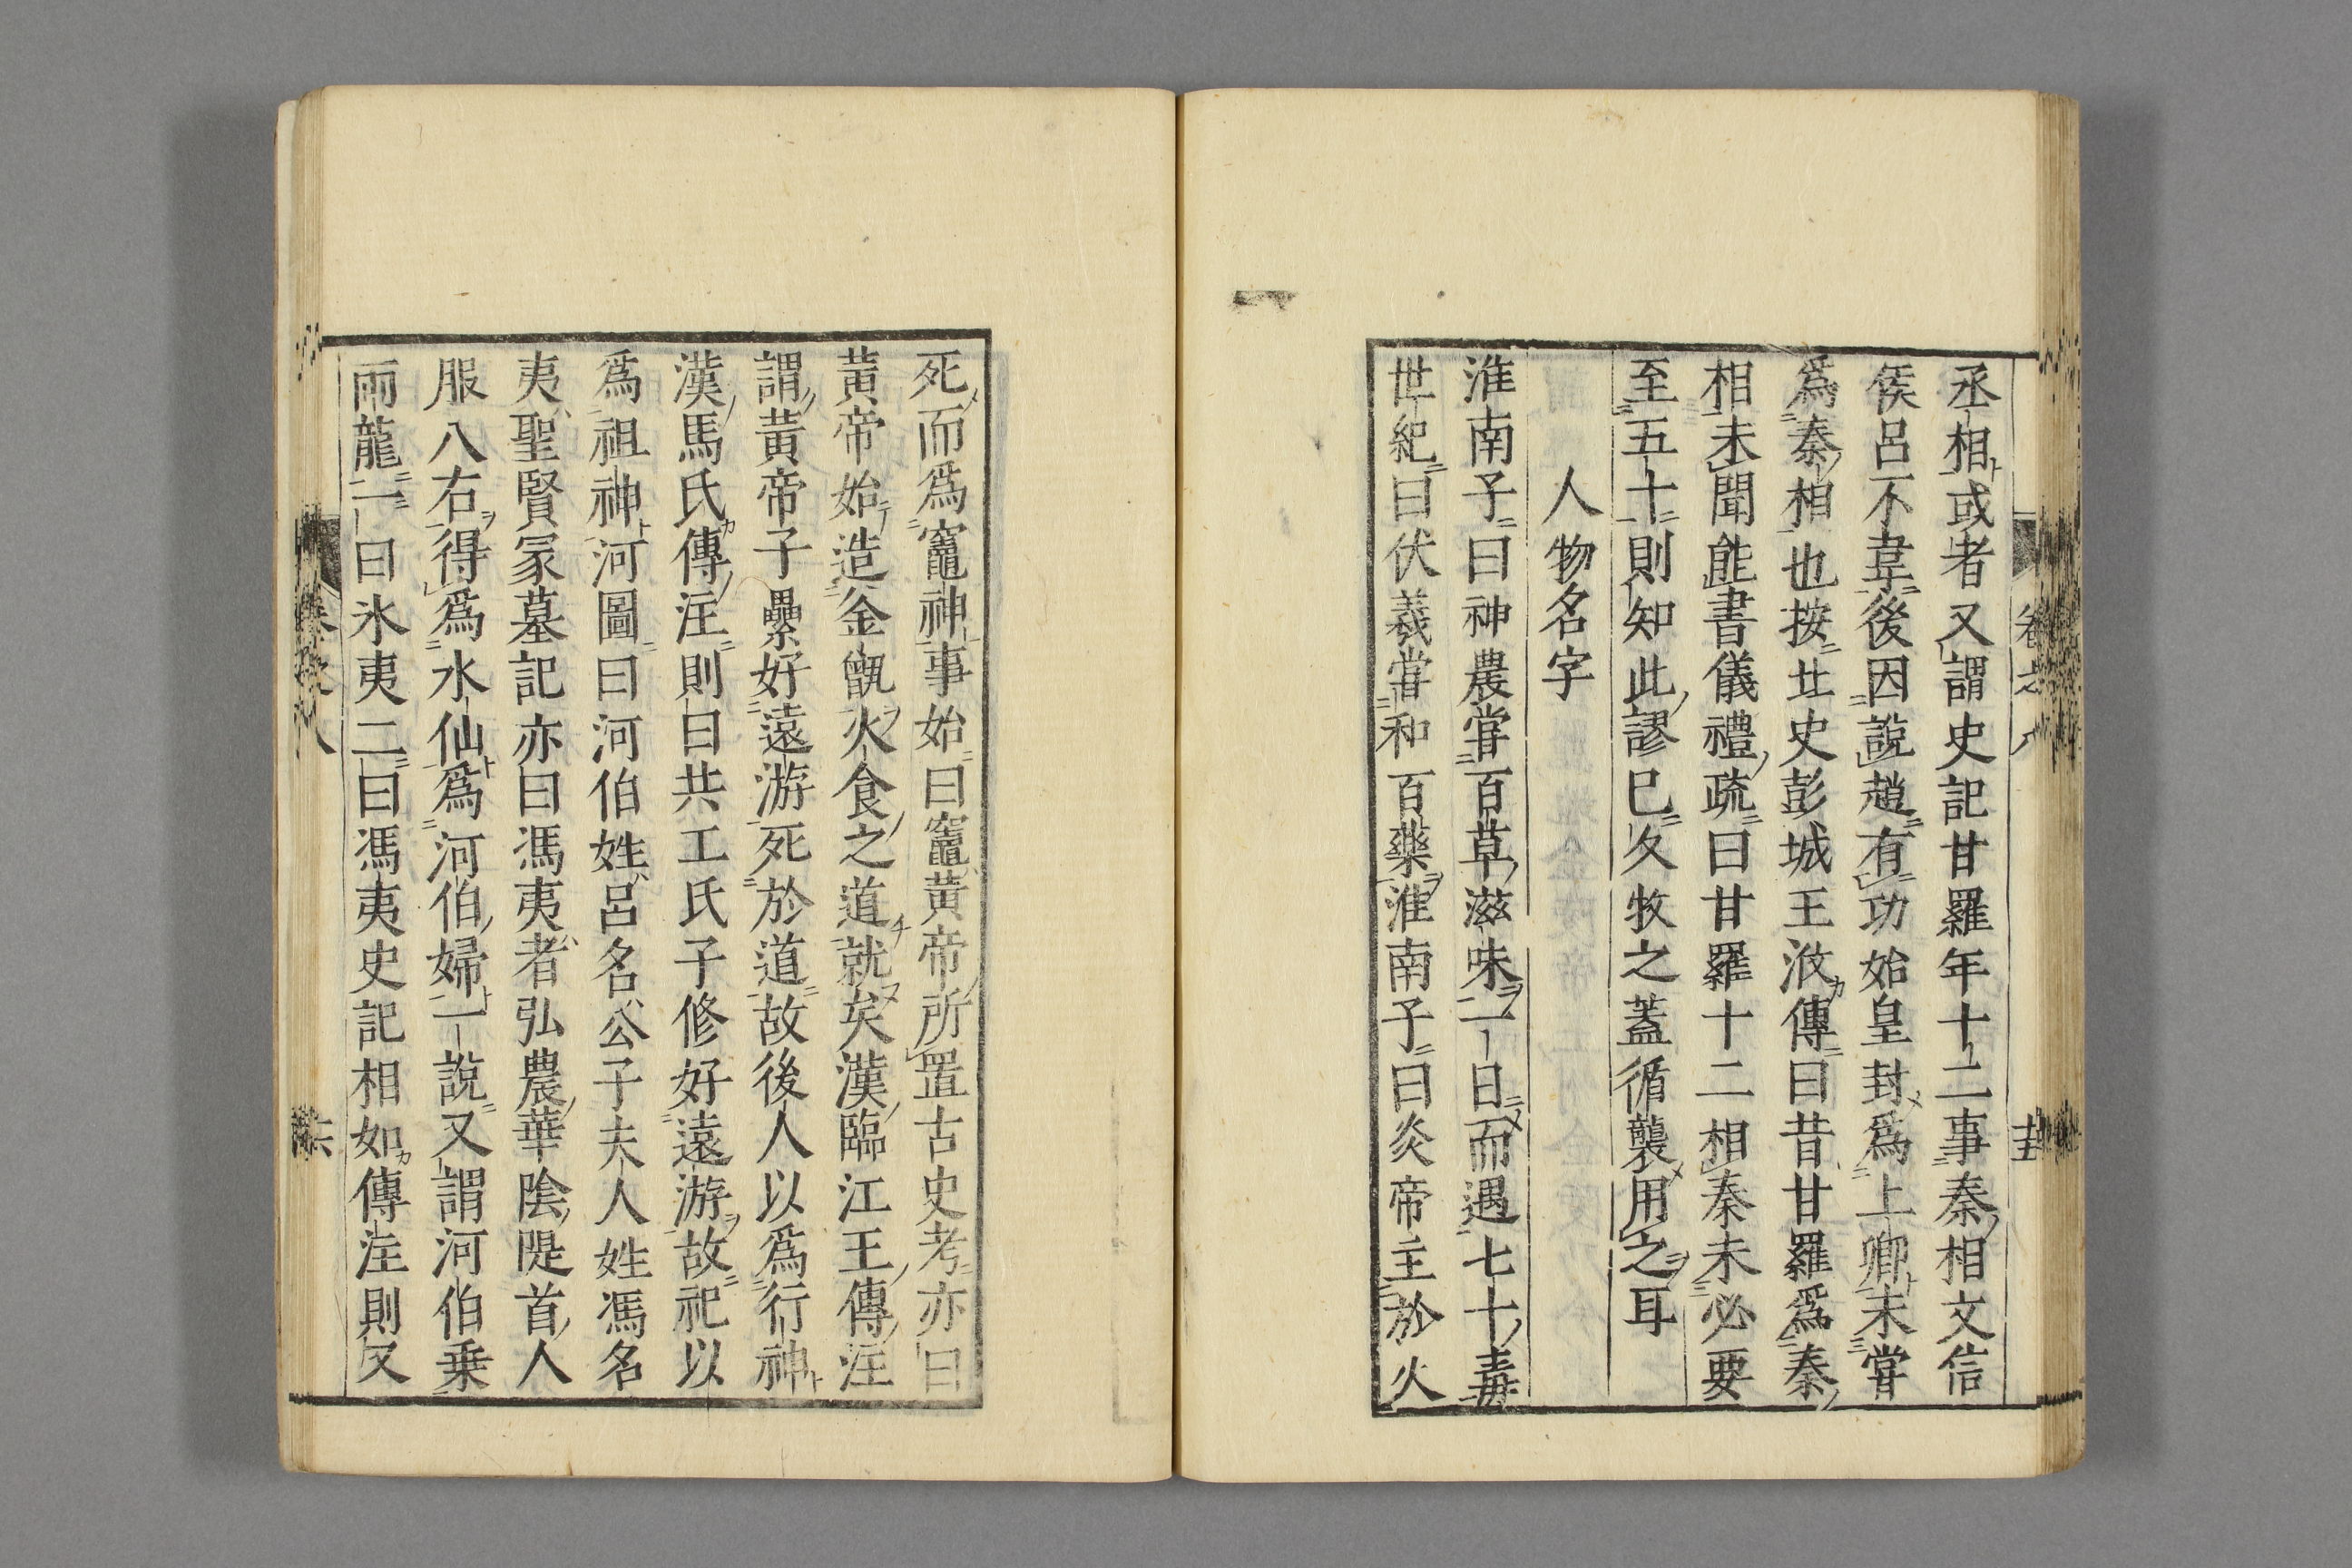 丞相或者又謂史記甘羅年十二事秦相文信
侯呂不韋後因說趙有功始皇封爲上卿未嘗
爲秦相也按北史彭城王浟傳曰昔甘羅爲秦
相未聞能書儀禮疏曰甘羅十二相秦未必要
至五十則知此謬已久牧之蓋循襲用之耳
人物名字
淮南子曰神農嘗百草滋味一日而遇七十毒
世紀曰伏羲嘗和百藥淮南子曰炎帝主於火
死而爲竈神事始曰竈黃帝所置古史考亦曰
黃帝始造釜甑火食之道就矣漢臨江王傳注
謂黃帝子纍好遠游死於道故後人以爲行神
漢馬氏傳注則曰共工氏子修好遠游故祀以
爲祖神河圖曰河伯姓呂名公子夫人姓馮名
夷聖賢冡墓記亦曰馮夷者弘農華陰隄首人
服八石得爲水仙爲河伯婦一說又謂河伯乗
兩龍一曰氷夷二曰馮夷史記相如傳注則又